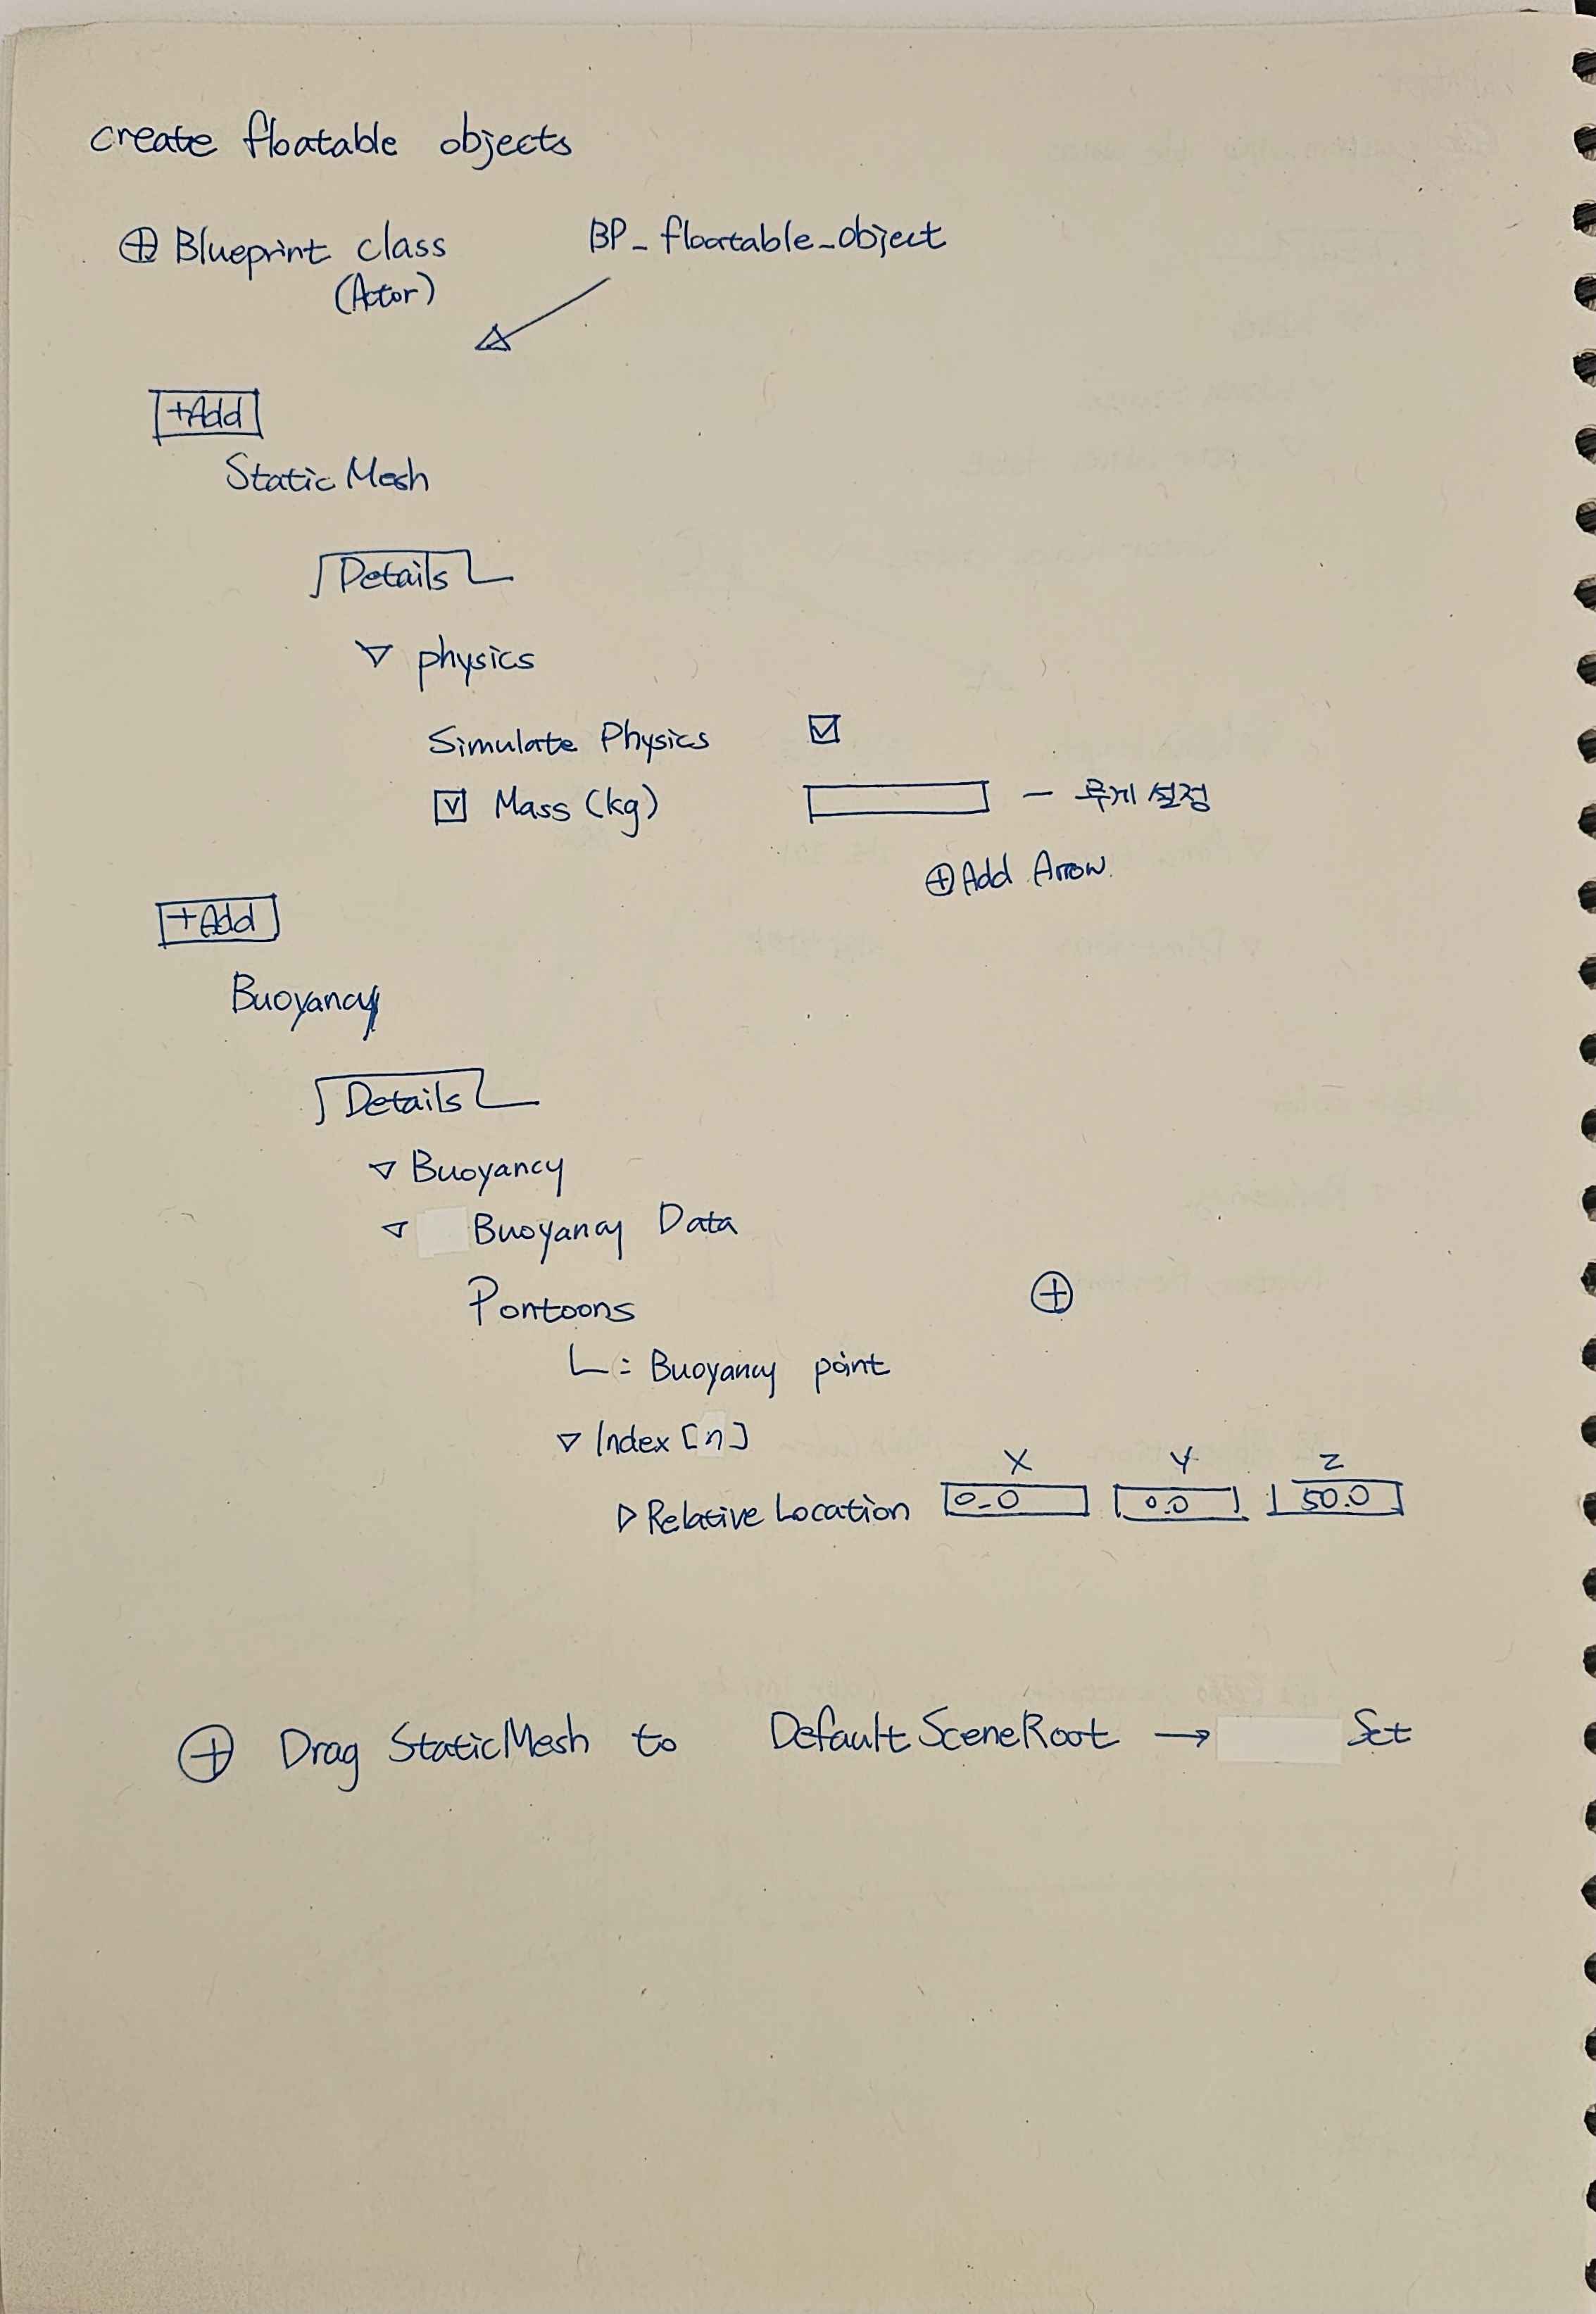 create floatable objects
⊕ Blueprint class
(Actor)
BP_floatable_object
+Add
Static Mesh
Details
▽ physics
Simulate Physics ☑
☑ Mass (kg) — 무게 설정
⊕ Add Arrow.
+Add
Buoyancy
Details
▽ Buoyancy
▽ Buoyancy Data
Pontoons ⊕
ㄴ: Buoyancy point
▽ Index [n]
X Y Z
▷ Relative Location 0.0 0.0 50.0
⊕ Drag StaticMesh to Default SceneRoot → Set